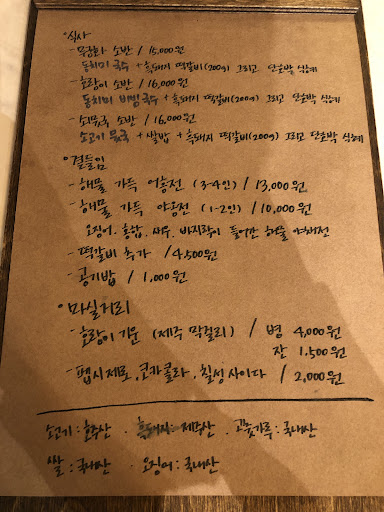 · 식사
- 무궁화 소반 / 15,000원
동치미 국수 + 흑돼지 떡갈비(200g) 그리고 단호박 식혜
- 호랑이 소반 / 16,000원
동치미 비빔국수 + 흑돼지 떡갈비(200g) 그리고 단호박 식혜
- 쇠무국 소반 / 16,000원
소고기 뭇국 + 쌀밥 + 흑돼지 떡갈비(200g) 그리고 단호박 식혜
· 곁들임
- 해물 가득 어흥전 (3-4인) / 13,000원
- 해물 가득 야옹전 (1-2인) / 10,000원
오징어, 홍합, 새우, 바지락이 들어간 해물 야채전
- 떡갈비 추가 / 4,500원
- 공기밥 / 1,000원
· 마실거리
- 호랑이 기운 (제주 막걸리) / 병 4,000원
잔 1,500원
- 펩시제로, 코카콜라, 칠성사이다 / 2,000원
소고기 : 호주산 · 흑돼지 : 제주산 · 고춧가루 : 국내산
쌀 : 국내산 · 오징어 : 국내산